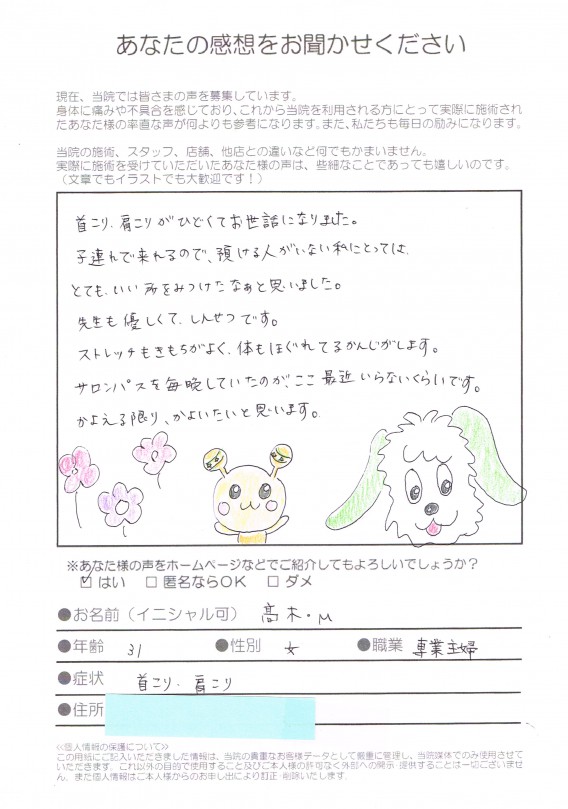 あなたの感想をお聞かせください
現在、当院では皆さまの声を募集しています。
身体に痛みや不具合を感じており、これから当院を利用される方にとって実際に施術され
たあなた様の率直な声が何よりも参考になります。また、私たちも毎日の励みになります。
当院の施術、スタッフ、店舗、他店との違いなど何でもかまいません。
実際に施術を受けていただいたあなた様の声は、些細なことであっても嬉しいのです。
（文章でもイラストでも大歓迎です！）
首こり、肩こりがひどくてお世話になりました。
子連れで来れるので、預ける人がいない私にとっては、
とても、いい所をみつけたなぁと思いました。
先生も優しくて、しんせつです。
ストレッチもきもちがよく、体もほぐれてるかんじがします。
サロンパスを毎晩していたのが、ここ最近いらないくらいです。
かよえる限り、かよいたいと思います。
※あなた様の声をホームページなどでご紹介してもよろしいでしょうか？
☑ はい □ 匿名ならOK □ ダメ
●お名前（イニシャル可） 髙木・M
●年齢 31 ●性別 女 ●職業 専業主婦
●症状 首こり、肩こり
●住所
≪個人情報の保護について≫
この用紙にご記入いただきました情報は、当院の貴重なお客様データとして厳重に管理し、当院媒体でのみ使用させて
いただきます。これ以外の目的で使用すること及びご本人様の許可なく外部への開示・提供することは一切ございませ
ん。また個人情報はご本人様からのお申し出により訂正・削除いたします.